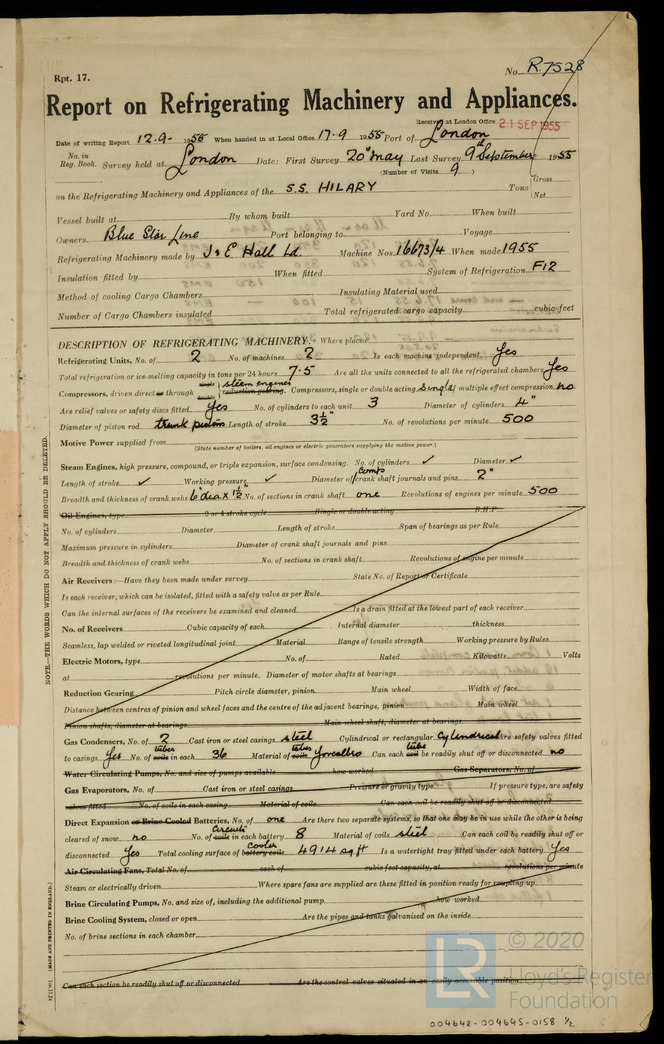 Rpt. 17.
No. R.7528
Report on Refrigerating Machinery and Appliances.
Received at London Office 21 SEP 1955
Date of writing Report 12.9- 1955 When handed in at Local Office 17.9 1955 Port of London
No. in Reg. Book. Survey held at London Date: First Survey 20th May Last Survey 9th September 1955
(Number of Visits 9 )
on the Refrigerating Machinery and Appliances of the S.S. HILARY Tons Gross Net
Vessel built at By whom built Yard No. When built
Owners Blue Star Line Port belonging to Voyage
Refrigerating Machinery made by J & E Hall Ld. Machine Nos. 16673/4 When made 1955
Insulation fitted by When fitted System of Refrigeration F12
Method of cooling Cargo Chambers Insulating Material used
Number of Cargo Chambers insulated Total refrigerated cargo capacity cubic feet
DESCRIPTION OF REFRIGERATING MACHINERY. Where placed
Refrigerating Units, No. of 2 No. of machines 2 Is each machine independent Yes
Total refrigeration or ice-melting capacity in tons per 24 hours 7.5 Are all the units connected to all the refrigerated chambers Yes
Compressors, driven direct or through single double steam engines reduction gearing. Compressors, single or double acting Single If multiple effect compression no
Are relief valves or safety discs fitted Yes No. of cylinders to each unit 3 Diameter of cylinders 4"
Diameter of piston rod trunk piston Length of stroke 3½" No. of revolutions per minute 500
Motive Power supplied from
(State number of boilers, oil engines or electric generators supplying the motive power.)
Steam Engines, high pressure, compound, or triple expansion, surface condensing. No. of cylinders ✓ Diameter ✓
Length of stroke ✓ Working pressure ✓ Diameter of comps crank shaft journals and pins 2"
Breadth and thickness of crank webs 6"dia x 1½" No. of sections in crank shaft one Revolutions of engines per minute 500
Oil Engines, type 2 or 4 stroke cycle Single or double acting B.H.P.
No. of cylinders Diameter Length of stroke Span of bearings as per Rule
Maximum pressure in cylinders Diameter of crank shaft journals and pins
Breadth and thickness of crank webs No. of sections in crank shaft Revolutions of engine per minute
Air Receivers:—Have they been made under survey State No. of Report or Certificate
Is each receiver, which can be isolated, fitted with a safety valve as per Rule
Can the internal surfaces of the receivers be examined and cleaned Is a drain fitted at the lowest part of each receiver
No. of Receivers Cubic capacity of each Internal diameter thickness
Seamless, lap welded or riveted longitudinal joint Material Range of tensile strength Working pressure by Rules
Electric Motors, type No. of Rated Kilowatts Volts
at revolutions per minute. Diameter of motor shafts at bearings
Reduction Gearing Pitch circle diameter, pinion Main wheel Width of face
Distance between centres of pinion and wheel faces and the centre of the adjacent bearings, pinion Main wheel
Pinion shafts, diameter at bearings Main wheel shaft, diameter at bearings
Gas Condensers, No. of 2 Cast iron or steel casings steel Cylindrical or rectangular Cylindrical Are safety valves fitted
to casings Yes No. of coils tubes in each 36 Material of coils tubes Yorcalbro Can each coil tube be readily shut off or disconnected no
Water Circulating Pumps, No. and size of pumps available how worked Gas Separators, No. of
Gas Evaporators, No. of Cast iron or steel casings Pressure or gravity type If pressure type, are safety
valves fitted No. of coils in each casing Material of coils Can each coil be readily shut off or disconnected
Direct Expansion or Brine Cooled Batteries, No. of one Are there two separate systems, so that one may be in use while the other is being
cleared of snow no No. of coils Circuits in each battery 8 Material of coils steel Can each coil be readily shut off or
disconnected Yes Total cooling surface of battery coils cooler 4914 sq ft Is a watertight tray fitted under each battery Yes
Air Circulating Fans, Total No. of each of cubic feet capacity, at revolutions per minute
Steam or electrically driven Where spare fans are supplied are these fitted in position ready for coupling up
Brine Circulating Pumps, No. and size of, including the additional pump how worked
Brine Cooling System, closed or open Are the pipes and tanks galvanised on the inside
No. of brine sections in each chamber
Can each section be readily shut off or disconnected Are the control valves situated in an easily accessible position
NOTE.—THE WORDS WHICH DO NOT APPLY SHOULD BE DELETED.
(MADE AND PRINTED IN ENGLAND.)
© 2020
Lloyd's Register
Foundation
LR
004642-004645-0158 ½